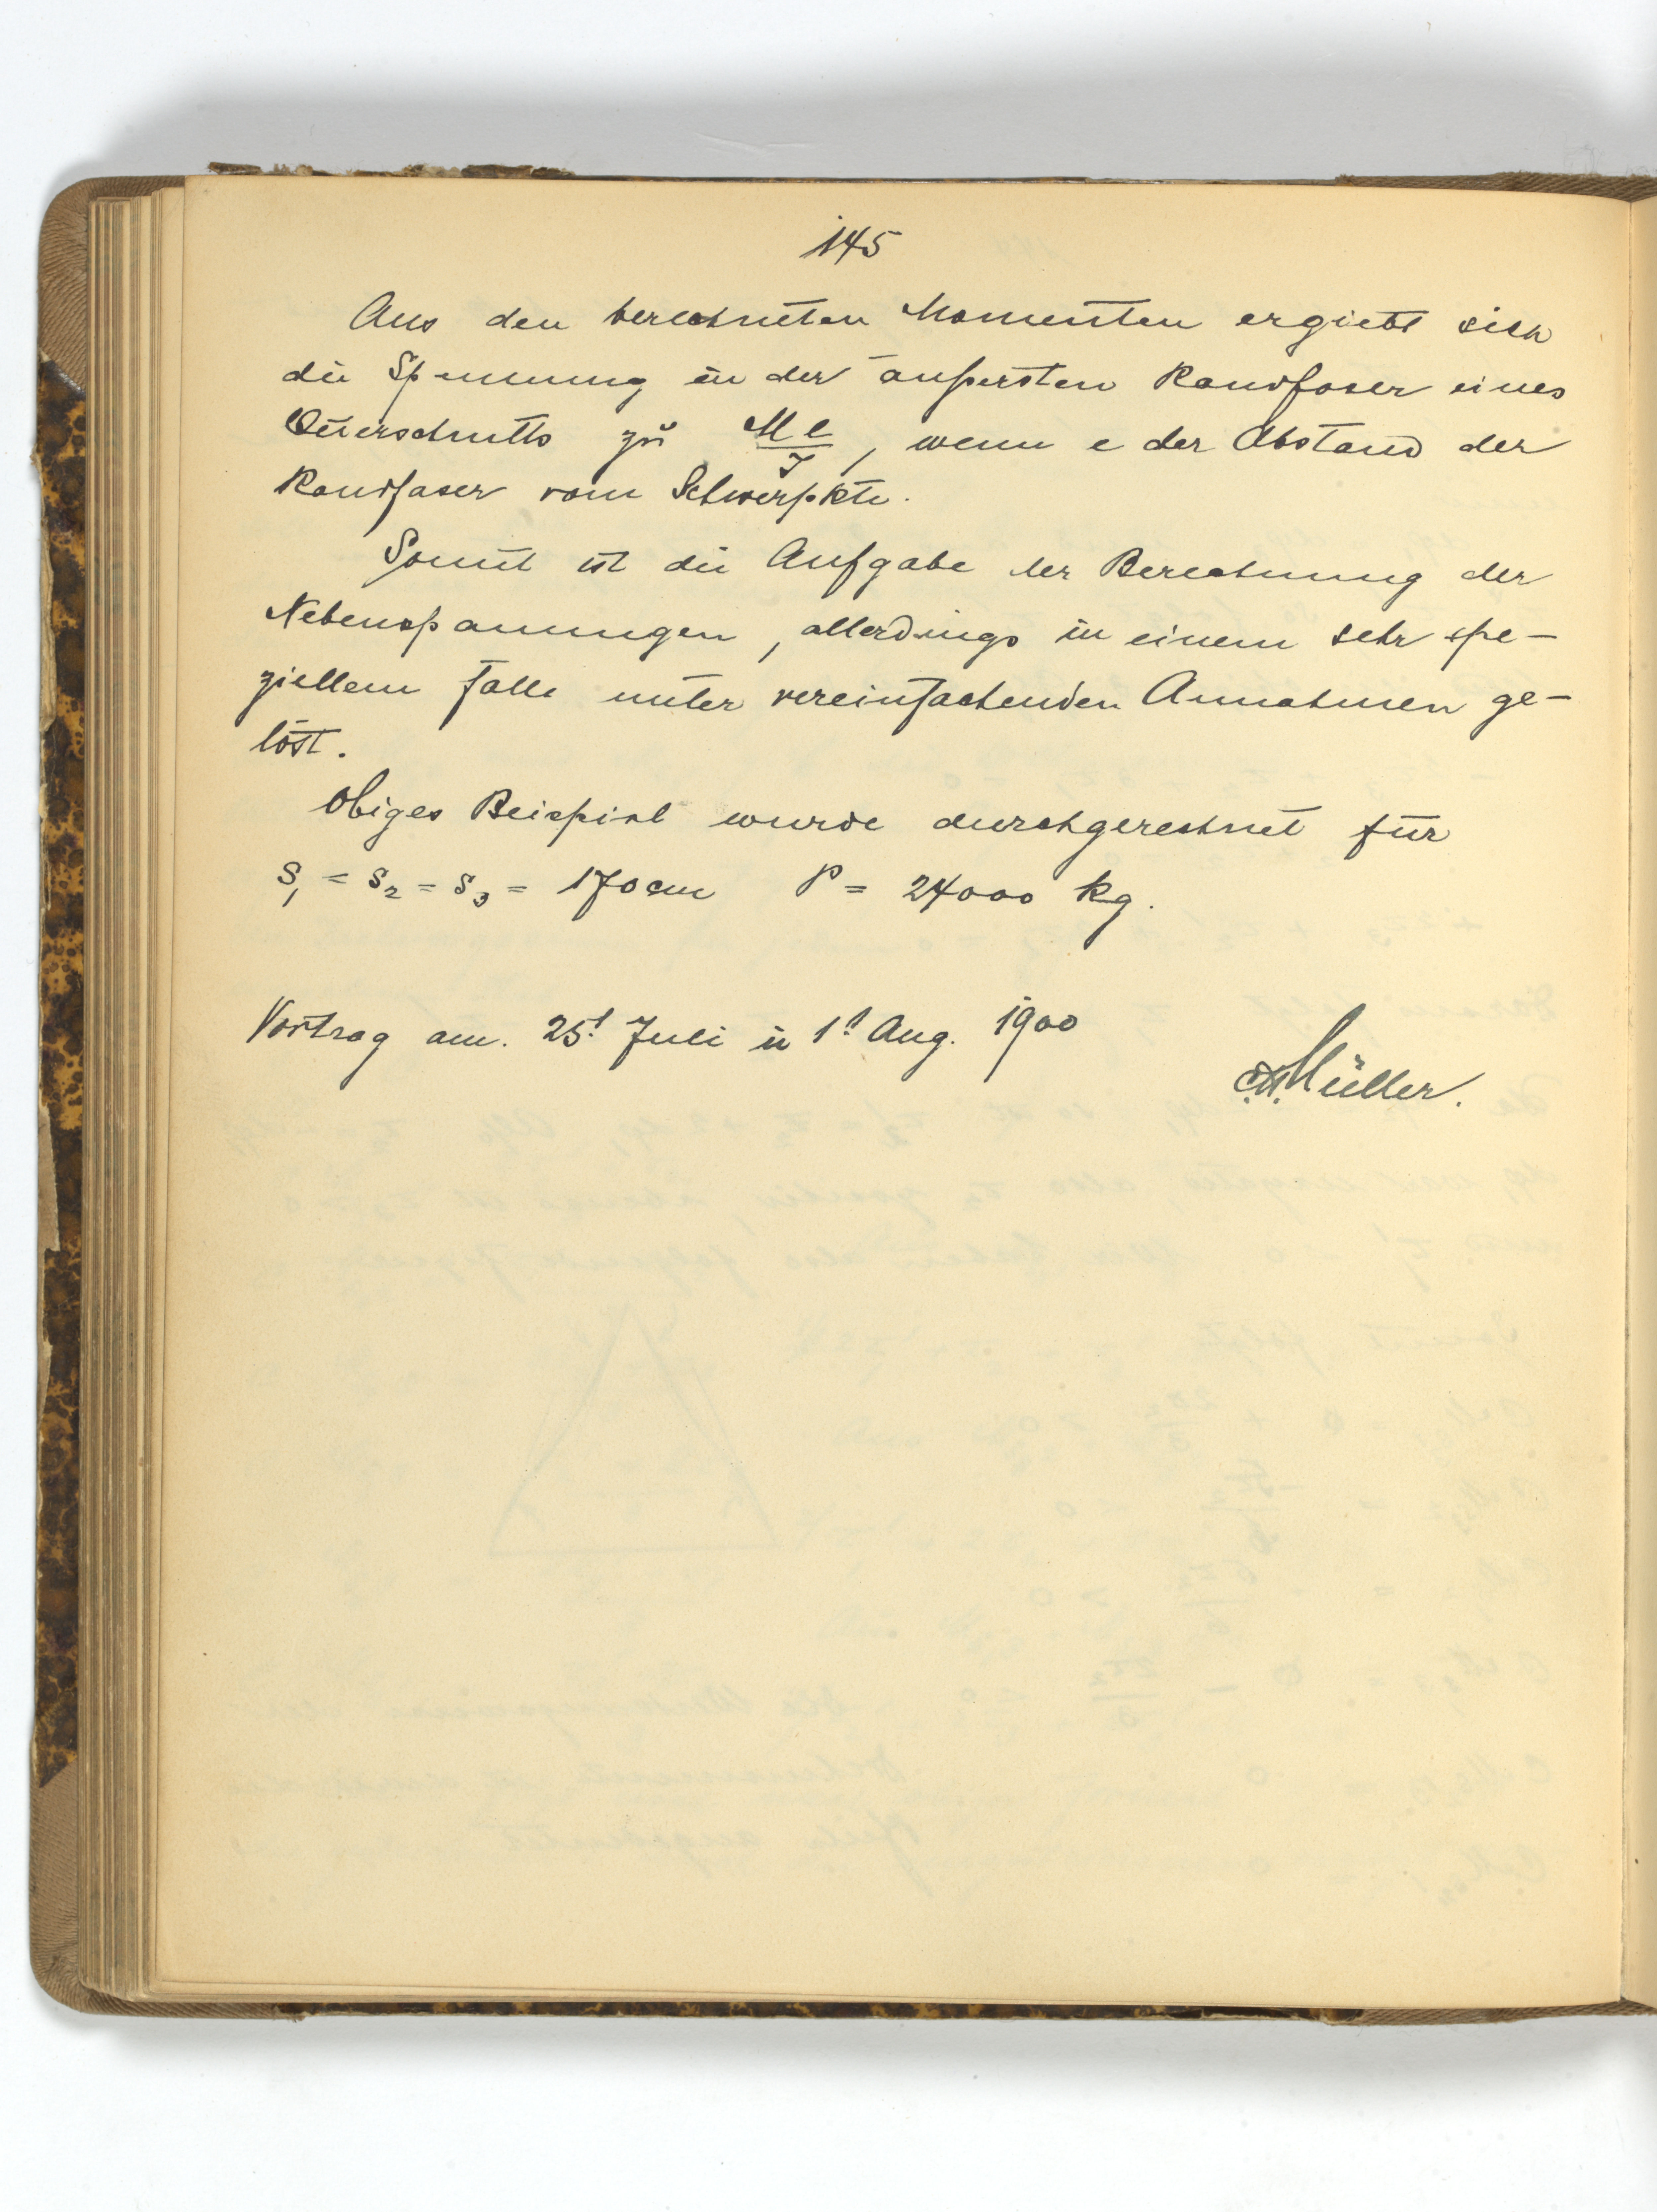 145
Aus den berechneten Momenten ergiebt sich
die Spannung in der äußersten Randfaser eines
Querschnitts zu M e / J , wenn e der Abstand der
Randfaser vom Schwerpkte.
Somit ist die Aufgabe der Berechnung der
Nebenspannungen, allerdings in einem sehr spe-
ziellem Falle unter vereinfachenden Annahmen ge-
löst.
Obiges Beispiel wurde durchgerechnet für
s₁ = s₂ = s₃ = 170 cm P = 24000 kg.
Vortrag am. 25t. Juli u 1t. Aug. 1900
Müller.